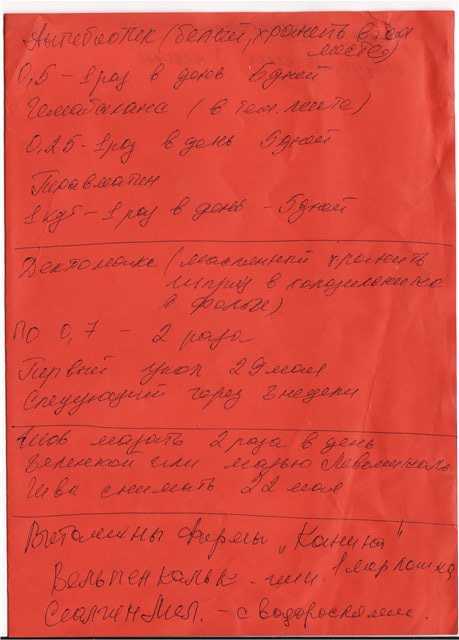 Антибиотик (белый, хранить в тем
месте)
0,5 - 1 раз в день 5 дней
(в тем. месте)
0,25 - 1 раз в день 5 дней
Травматин
1 куб - 1 раз в день - 5 дней
Дектомакс (масляный хранить
шприц в холодильнике
в фольге)
по 0,7 - 2 раза
Первый укол 29 мая
Следующий через недели
Шов мазать 2 раза в день
зеленкой или мазью Левомиколь
Швы снимать 22 мая
Витамины фирмы „Канина"
Вельпенкальк - или
- с водорослями.